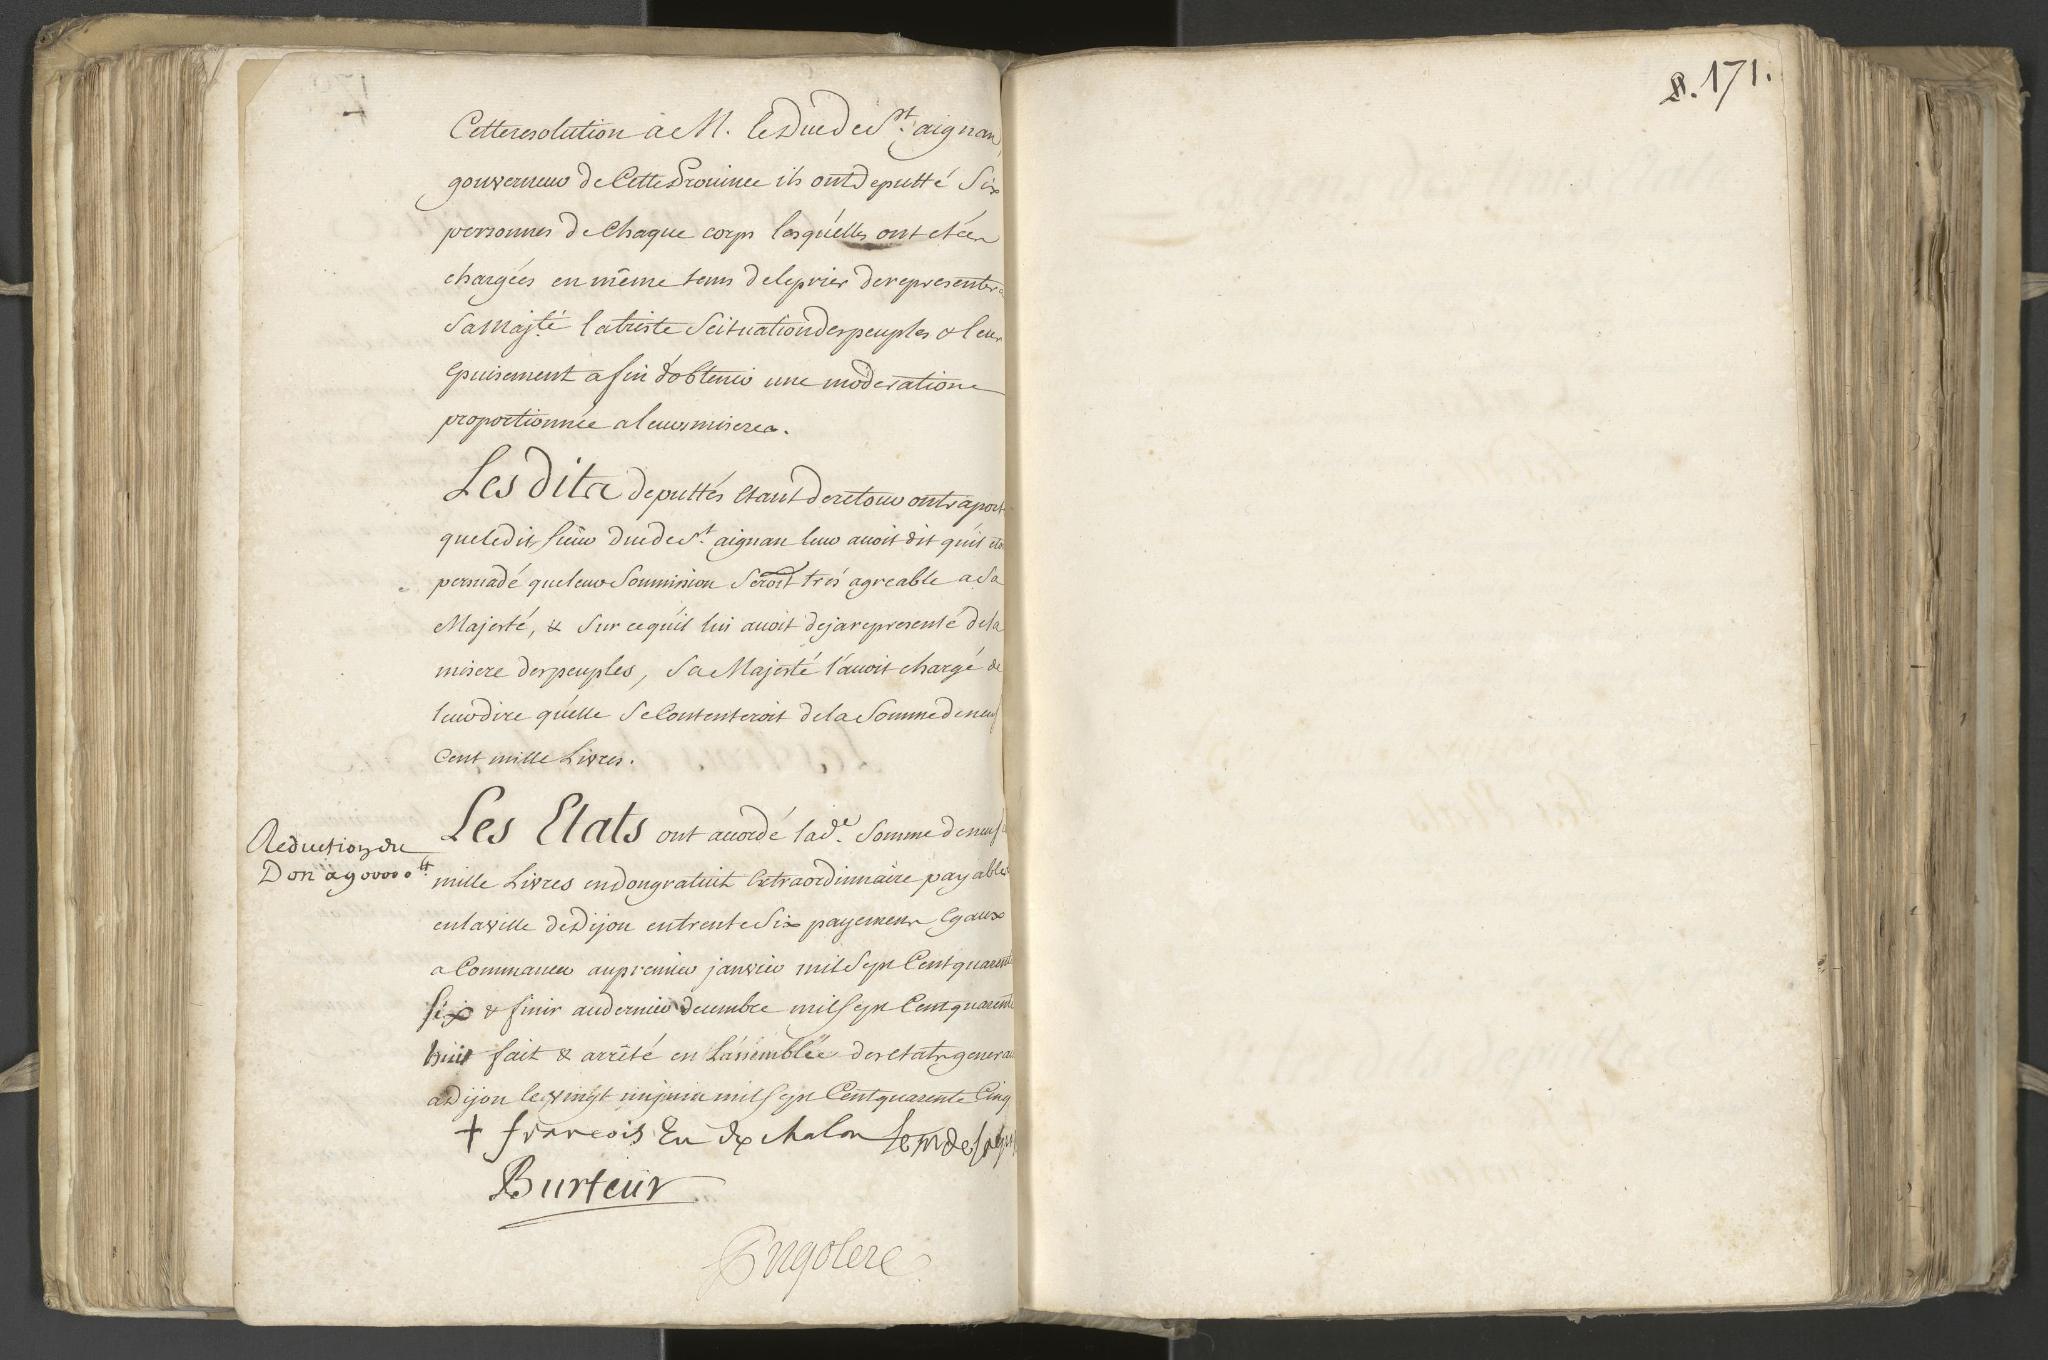 Cette resolution a M. le Duc de St. aignan,
gouverneur de Cette Province ils ont deputté Six
personnes de Chaque corps lesquélles ont eté
chargées en même tems de le prier de representer
Sa Majté. la triste Scituation des peuples & leur
Epuisement afin d'obtenir une moderation
proportionnée a leurs miseres.
Les Dits deputtés etant de retour ont raport
que ledit Sieur Duc de St. aignan leur avoit dit qu'il
persuadé que leur Soumission Seroit trés agreable a Sa
Majesté, & Sur ce qu'il lui avoit deja representé de la
misere des peuples, Sa Majesté l'avoit chargé de
leur dire qu'elle Se Contenteroit de la Somme de neuf
Cent mille Livres.
Reduction du
Don a 900000 tt.
Les Etats ont accordé lade. Somme de neuf
mille Livres en don gratuit Extraordinnaire payables
en la ville de Dijon en trente Six payemens Egaux
a Commancer au premier janvier mil Sept Cent quarente
Six & finir au dernier decembre mil Sept Cent quarente
huit fait & arrêté en L'assemblée des etats generau
a Dijon le vingt un juin mil Sept Cent quarente Cinq
+ françois Ev de chalon
Burteur
171.